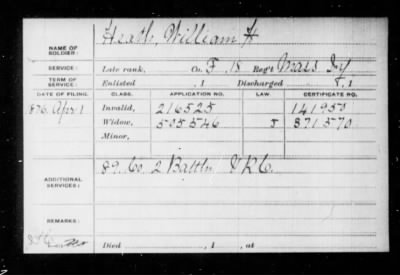 NAME OF SOLDIER: Heath, William H
SERVICE: Late rank, Co. F. 18 Reg't Mass Inf
TERM OF SERVICE: Enlisted , 1 Discharged , 1
DATE OF FILING. CLASS. APPLICATION NO. LAW CERTIFICATE NO.
1876, Apr 1 Invalid, 216525 141950
Widow, 505546 J 371570
Minor,
ADDITIONAL SERVICES: 89. Co. 2 Battln V.R.C.
REMARKS:
Died , 1 , at